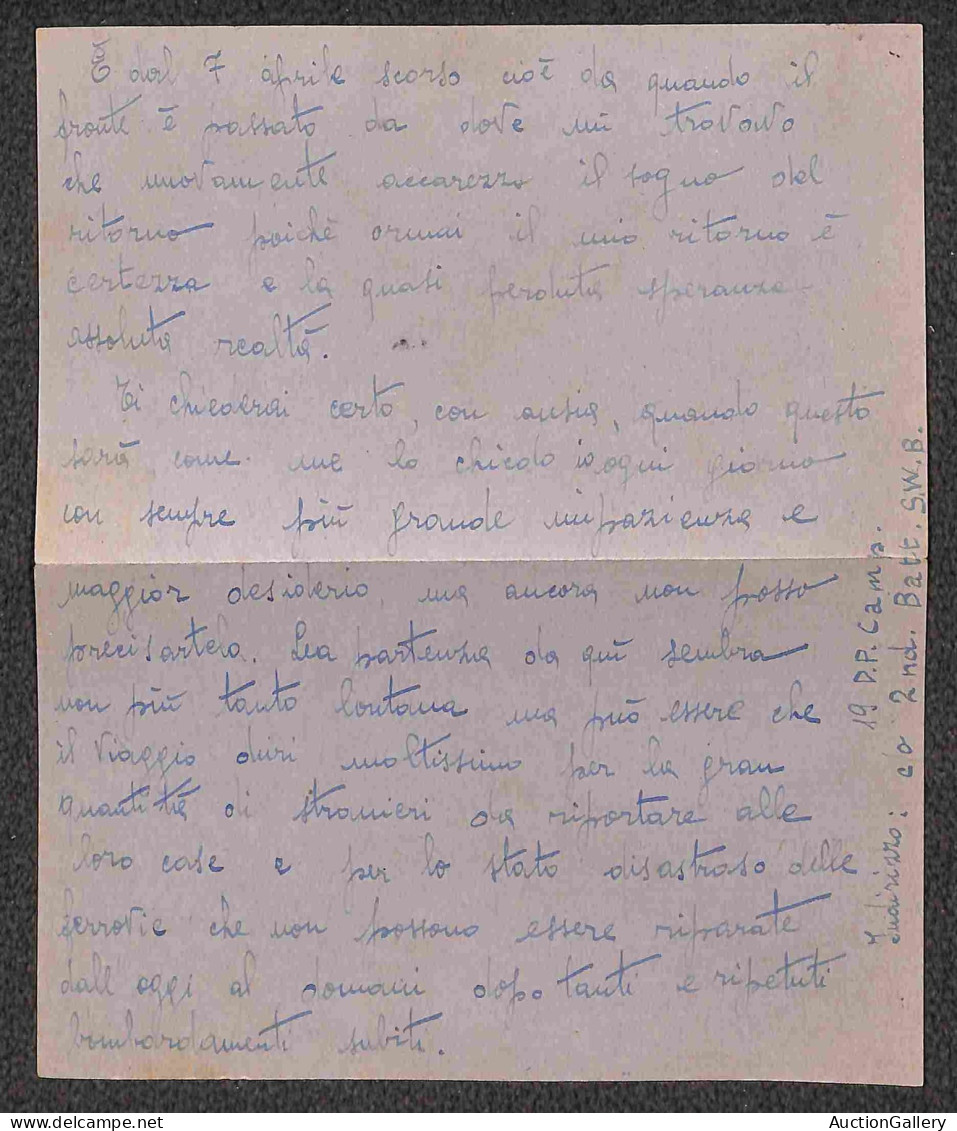 È dal 7 aprile scorso cioè da quando il
fronte è passato da dove mi trovavo
che nuovamente accarezzo il sogno del
ritorno poichè ormai il mio ritorno è
certezza e la quasi perduta speranza
assoluta realtà.
Ti chiederai certo, con ansia, quando questo
sarà, come me lo chiedo io ogni giorno
con sempre più grande impazienza e
maggior desiderio, ma ancora non posso
precisartelo. La partenza da quì sembra
non più tanto lontana ma può essere che
il viaggio duri moltissimo per la gran
quantità di stranieri da riportare alle
loro case e per lo stato disastroso delle
ferrovie che non possono essere riparate
dall'oggi al domani dopo tanti e ripetuti
bombardamenti subiti.
19 D.P. Camp.
Indirizzo: c/o 2nd. Batt. S.W.B.
AuctionGallery